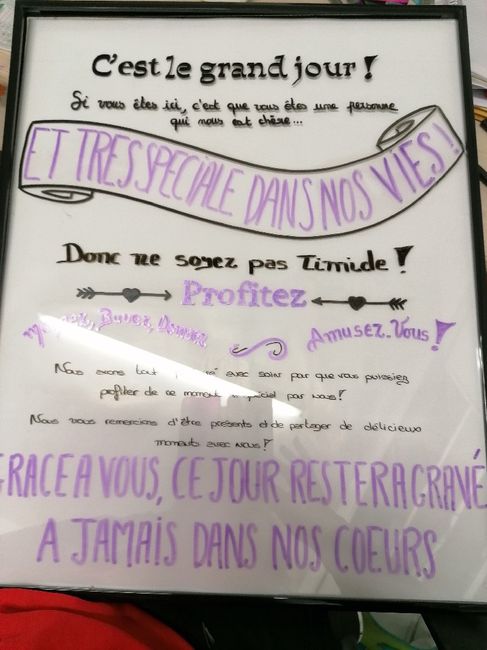 C'est le grand jour !
Si vous êtes ici, c'est que vous êtes une personne
qui nous est chère...
ET TRES SPECIALE DANS NOS VIES !
Donc ne soyez pas Timide !
Profitez
Buvez, Dansez
Amusez-Vous !
Nous avons tout avec soin par que vous puissiez
profiter de ce moment par nous !
Nous vous remercions d'être présents et de partager de délicieux
moments avec nous !
GRACE A VOUS, CE JOUR RESTERA GRAVÉ
A JAMAIS DANS NOS COEURS